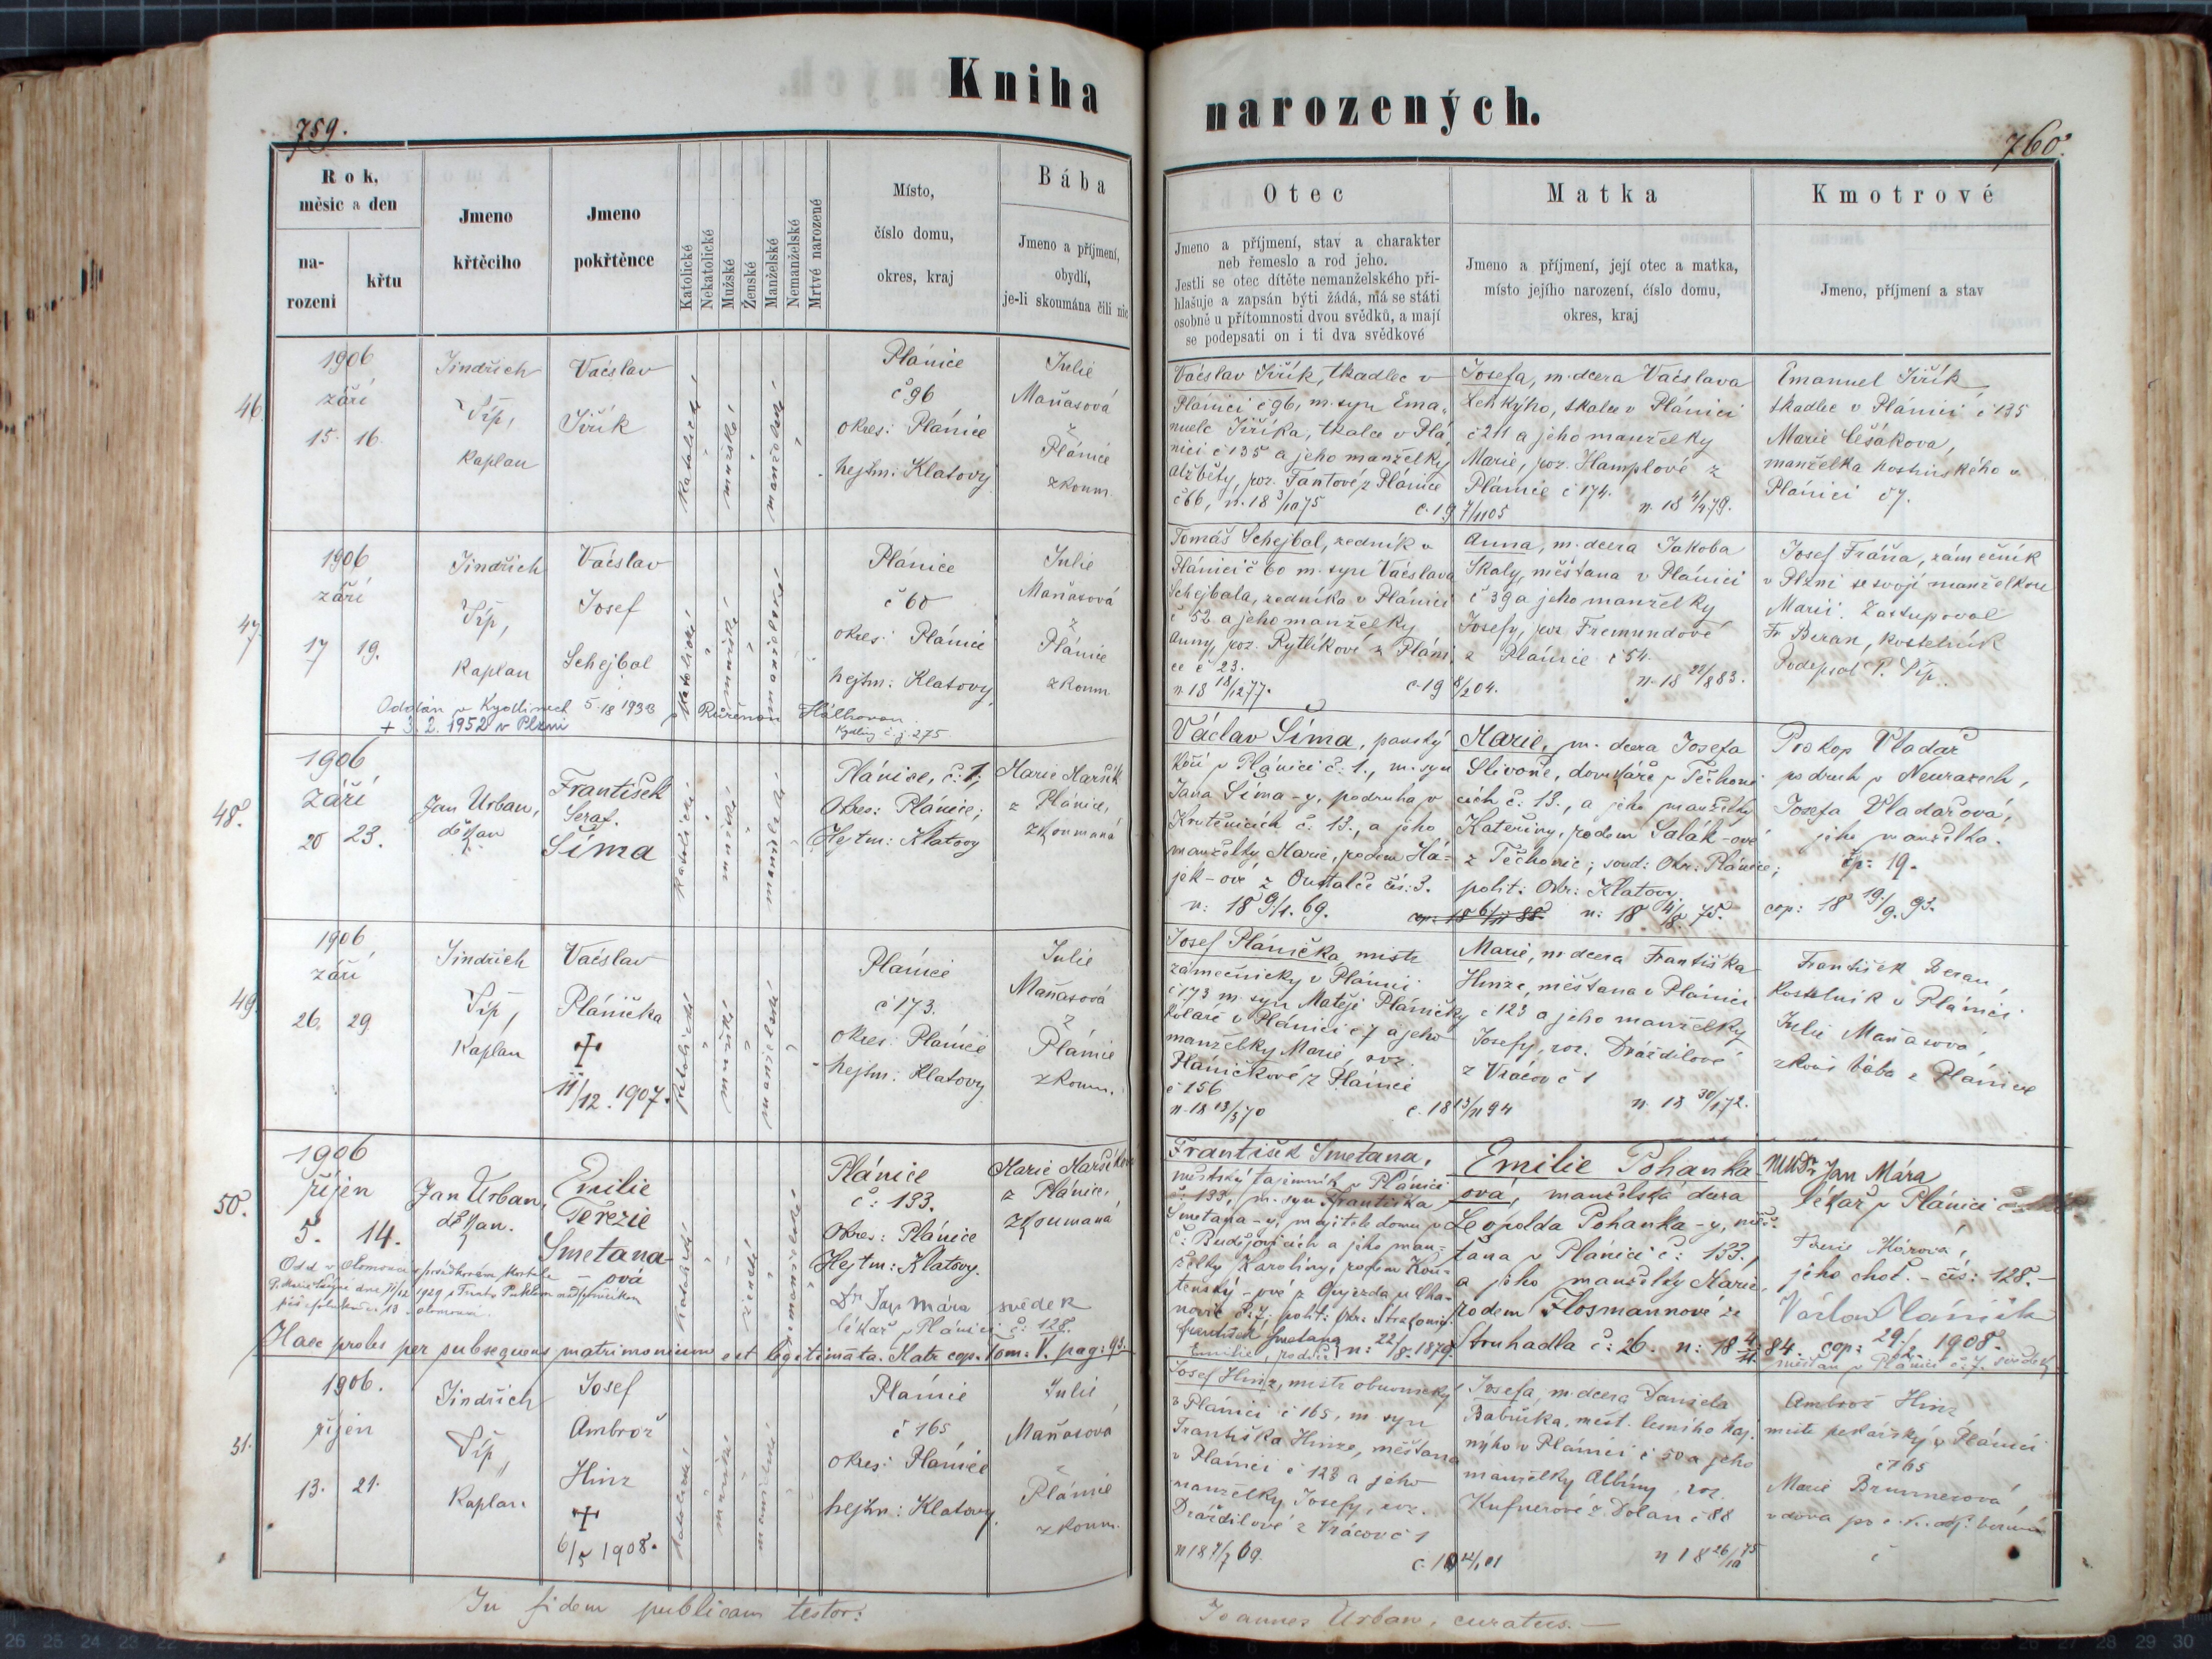 Kniha
narozených.
759.
760.
Rok,
měsíc a den
na-
rozeni
křtu
Jmeno
křtěcího
Jmeno
pokřtěnce
Katolické
Nekatolické
Mužské
Ženské
Manželské
Nemanželské
Mrtvé narozené
Místo,
číslo domu,
okres, kraj
Bába
Jmeno a příjmení,
obydlí,
je-li skoumána čili nic
Otec
Jmeno a příjmení, stav a charakter
neb řemeslo a rod jeho.
Jestli se otec dítěte nemanželského při-
hlašuje a zapsán býti žádá, má se státi
osobně u přítomnosti dvou svědků, a mají
se podepsati on i ti dva svědkové
Matka
Jmeno a příjmení, její otec a matka,
místo jejího narození, číslo domu,
okres, kraj
Kmotrové
Jmeno, příjmení a stav
46.
1906
září
15. 16.
Jindřich
Šíp,
kaplan
Václav
Jiřík
katolické
mužské
manželské
Plánice
č 96
okres: Plánice
hejtm: Klatovy
Julie
Maňasová
z
Plánice
zkoum.
Václav Jiřík, tkadlec v
Plánici č 96, m. syn Ema„
nuele Jiříka, tkalce v Plá„
nici č 135 a jeho manželky
Alžběty, roz. Fantové z Plánice
č 66, n. 18 3/10 75
c. 19 7/11 05
Josefa, m. dcera Václava
Lehkýho, tkalce v Plánici
č 211 a jeho manželky
Marie, roz. Hamplové z
Plánice č 174.
n. 18 4/4 79.
Emanuel Jiřík
tkadlec v Plánici č 135
Marie Češákova,
manželka hostinského v
Plánici 57.
47.
1906
září
17 19.
Jindřich
Šíp,
kaplan
Václav
Josef
Schejbal
katolické
mužské
manželské
Plánice
č 60
okres: Plánice
hejtm: Klatovy
Julie
Maňasová
z
Plánice
zkoum
Oddán v Kydlinech 5./8 1933 s Růženou
+ 3. 2. 1952 v Plzni
Kydliny č. j. 275.
Tomáš Schejbal, zedník v
Plánici č 60 m. syn Václava
Schejbala, zedníka v Plánici
č 52 a jeho manželky
Anny, roz. Rytlíkové z Pláni
ce č 23.
n 18 18/12 77.
c. 19 8/2 04.
Anna, m. dcera Jakoba
Skaly, měšťana v Plánici
č 39 a jeho manželky
Josefy, roz Fremundové
z Plánice č 54.
n. 18 22/8 83.
Josef Fráňa, zámečník
v Plzni se svojí manželkou
Marií. Zastupoval
Fr Beran, kostelník
Podepsal P. Šíp
48.
1906
září
20 23.
Jan Urban,
děkan
František
Seraf.
Šíma
katolické
mužské
manželské
Plánice, č: 1;
Okres: Plánice;
Hejtm: Klatovy
Marie Maršík
z Plánice,
zkoumaná
Václav Šíma, panský
kočí v Plánici č: 1., m. syn
Jana Šíma-y, podruha v
Kvutěnicích č. 13., a jeho
manželky Marie, rodem Há-
jek-ové z Oustalče čís: 3.
n: 18 9/1. 69.
Marie, m. dcera Josefa
Slivoně, domkáře v Těchoni-
cích č: 13., a jeho manželky
Kateřiny, rodem Salák-ové
z Těchonic; soud: Okr: Plánice;
polit: Okr: Klatovy.
n: 18 4/8. 75.
Prokop Vladař
podruh v Neurazech,
Josefa Vladařová,
jeho manželka.
čp: 19.
cop: 18 19/9. 93.
49.
1906
září
26. 29
Jindřich
Šíp,
kaplan
Václav
Plánička
11/12. 1907.
katolické
mužské
manželské
Plánice
č 173.
okres: Plánice
hejtm: Klatovy
Julie
Maňasová
z
Plánice
zkoum.
Josef Plánička, mistr
zámečnický v Plánici
č 173 m. syn Matěje Pláničky
koláře v Plánici č 7 a jeho
manželky Marie, roz.
Pláničkové z Plánice
č 156
n. 18 13/3 70
c. 18 13/11 94
Marie, m dcera Františka
Hinze, měšťana v Plánici
č 123 a jeho manželky
Josefy, roz. Dráždilové
z Vrácov č 1
n. 18 30/1 72.
František Beran,
kostelník v Plánici
Julie Maňasová,
zkouš bába z Plánice
50.
1906
říjen
5. 14.
Jan Urban,
děkan.
Emilie
Terezie
Smetana-
ová
katolické
ženské
nemanželské
Plánice
č: 133.
Okres: Plánice
Hejtm: Klatovy.
Dr Jan Mára svědek
lékař v Plánici č: 128.
Marie Maršíkova
z Plánice,
zkoumaná
Haec proles per subsequens matrimonium est legitimata. Matr. cop. Tom: V. pag: 93.
František Smetana,
městský tajemník v Plánici
č: 133, m. syn Františka
Smetana-y, majitele domu v
č: Budějovicích a jeho man-
želky Karoliny, rodem Kou-
tenský-ové z
František Smetana n: 22/8. 1879.
Emilie Pohanka-
ová, manželská dcera
Leopolda Pohanka-y, měš-
ťana v Plánici č: 133.,
a jeho manželky Marie,
rodem Flosmannove ze
Struhadla č: 26. n: 18 4/11. 84. cop: 29./2. 1908.
MUDr Jan Mára
lékař v Plánici
Terezie Márová,
jeho choť. – čís: 128.–
Václav Plánička
měšťan v Plánici č: 7. svědek
51.
1906.
říjen
13. 21.
Jindřich
Šíp,
kaplan
Josef
Ambrož
Hinz
6/5 1908.
katolické
mužské
manželské
Plánice
č 165
okres: Plánice
hejtm: Klatovy
Julie
Maňasová
z
Plánice
zkoum.
Josef Hinz, mistr obuvnický
v Plánici č 165, m. syn
Františka Hinze, měšťana
v Plánici č 123 a jeho
manželky Josefy, roz.
Dráždilové z Vrácov č 1
Josefa m. dcera Daniela
Babůrka, měst. lesního haj.
ného v Plánici č 50 a jeho
manželky Albíny, roz.
Kufnerové z Dolan č 88
n 18 26/10 75
Ambrož Hinz
mistr pekařský v Plánici
č 165
Marie Brunnerová,
vdova po c. k.
In fidem publicam testor:
Joannes Urban, curatus.–